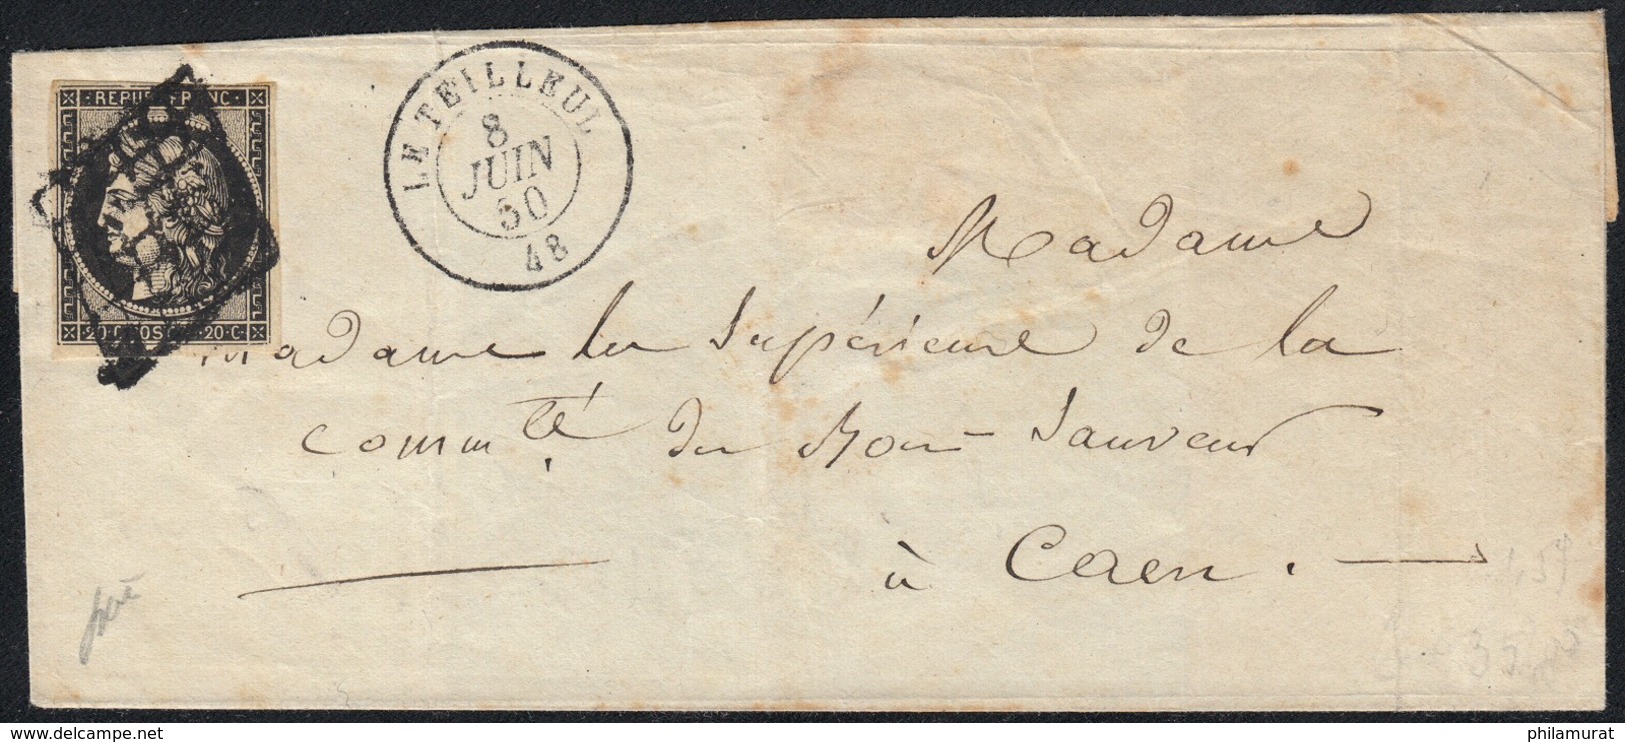 REPUB FRANC
20 C POSTE 20 C
LE TEILLEUL
8
JUIN
50
48
Madame
Madame la Supérieure de la
commté du Bon Sauveur
à Caen.
1,59
35
www.delcampe.net
philamurat